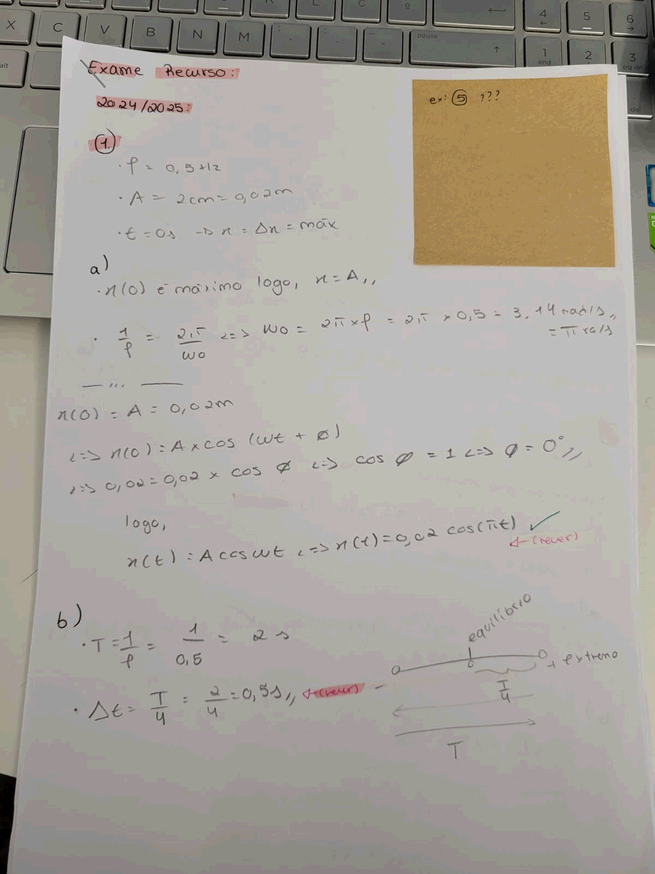 Exame Recurso:
2024/2025:
ex: 5 ???
1.
· f = 0,5 Hz
· A = 2cm = 0,02m
· t = 0s → x = Δx = máx
a)
· x(0) é máximo logo, x = A,,
· 1/f = 2π/wo <=> wo = 2π×f = 2π × 0,5 = 3,14 rad/s,,
= π ra/s
— ... —
x(0) = A = 0,02m
<=> x(0) = A × cos (wt + ø)
<=> 0,02 = 0,02 × cos ø <=> cos ø = 1 <=> ø = 0°,,
logo,
x(t) = A cos wt <=> x(t) = 0,02 cos(πt) ✓
← (rever)
b)
· T = 1/f = 1/0,5 = 2 s
· Δt = T/4 = 2/4 = 0,5s,, ← (rever)
equilíbrio
→ extremo
T/4
T
X C V B N M
pause
4 5 6
1 2 3
end